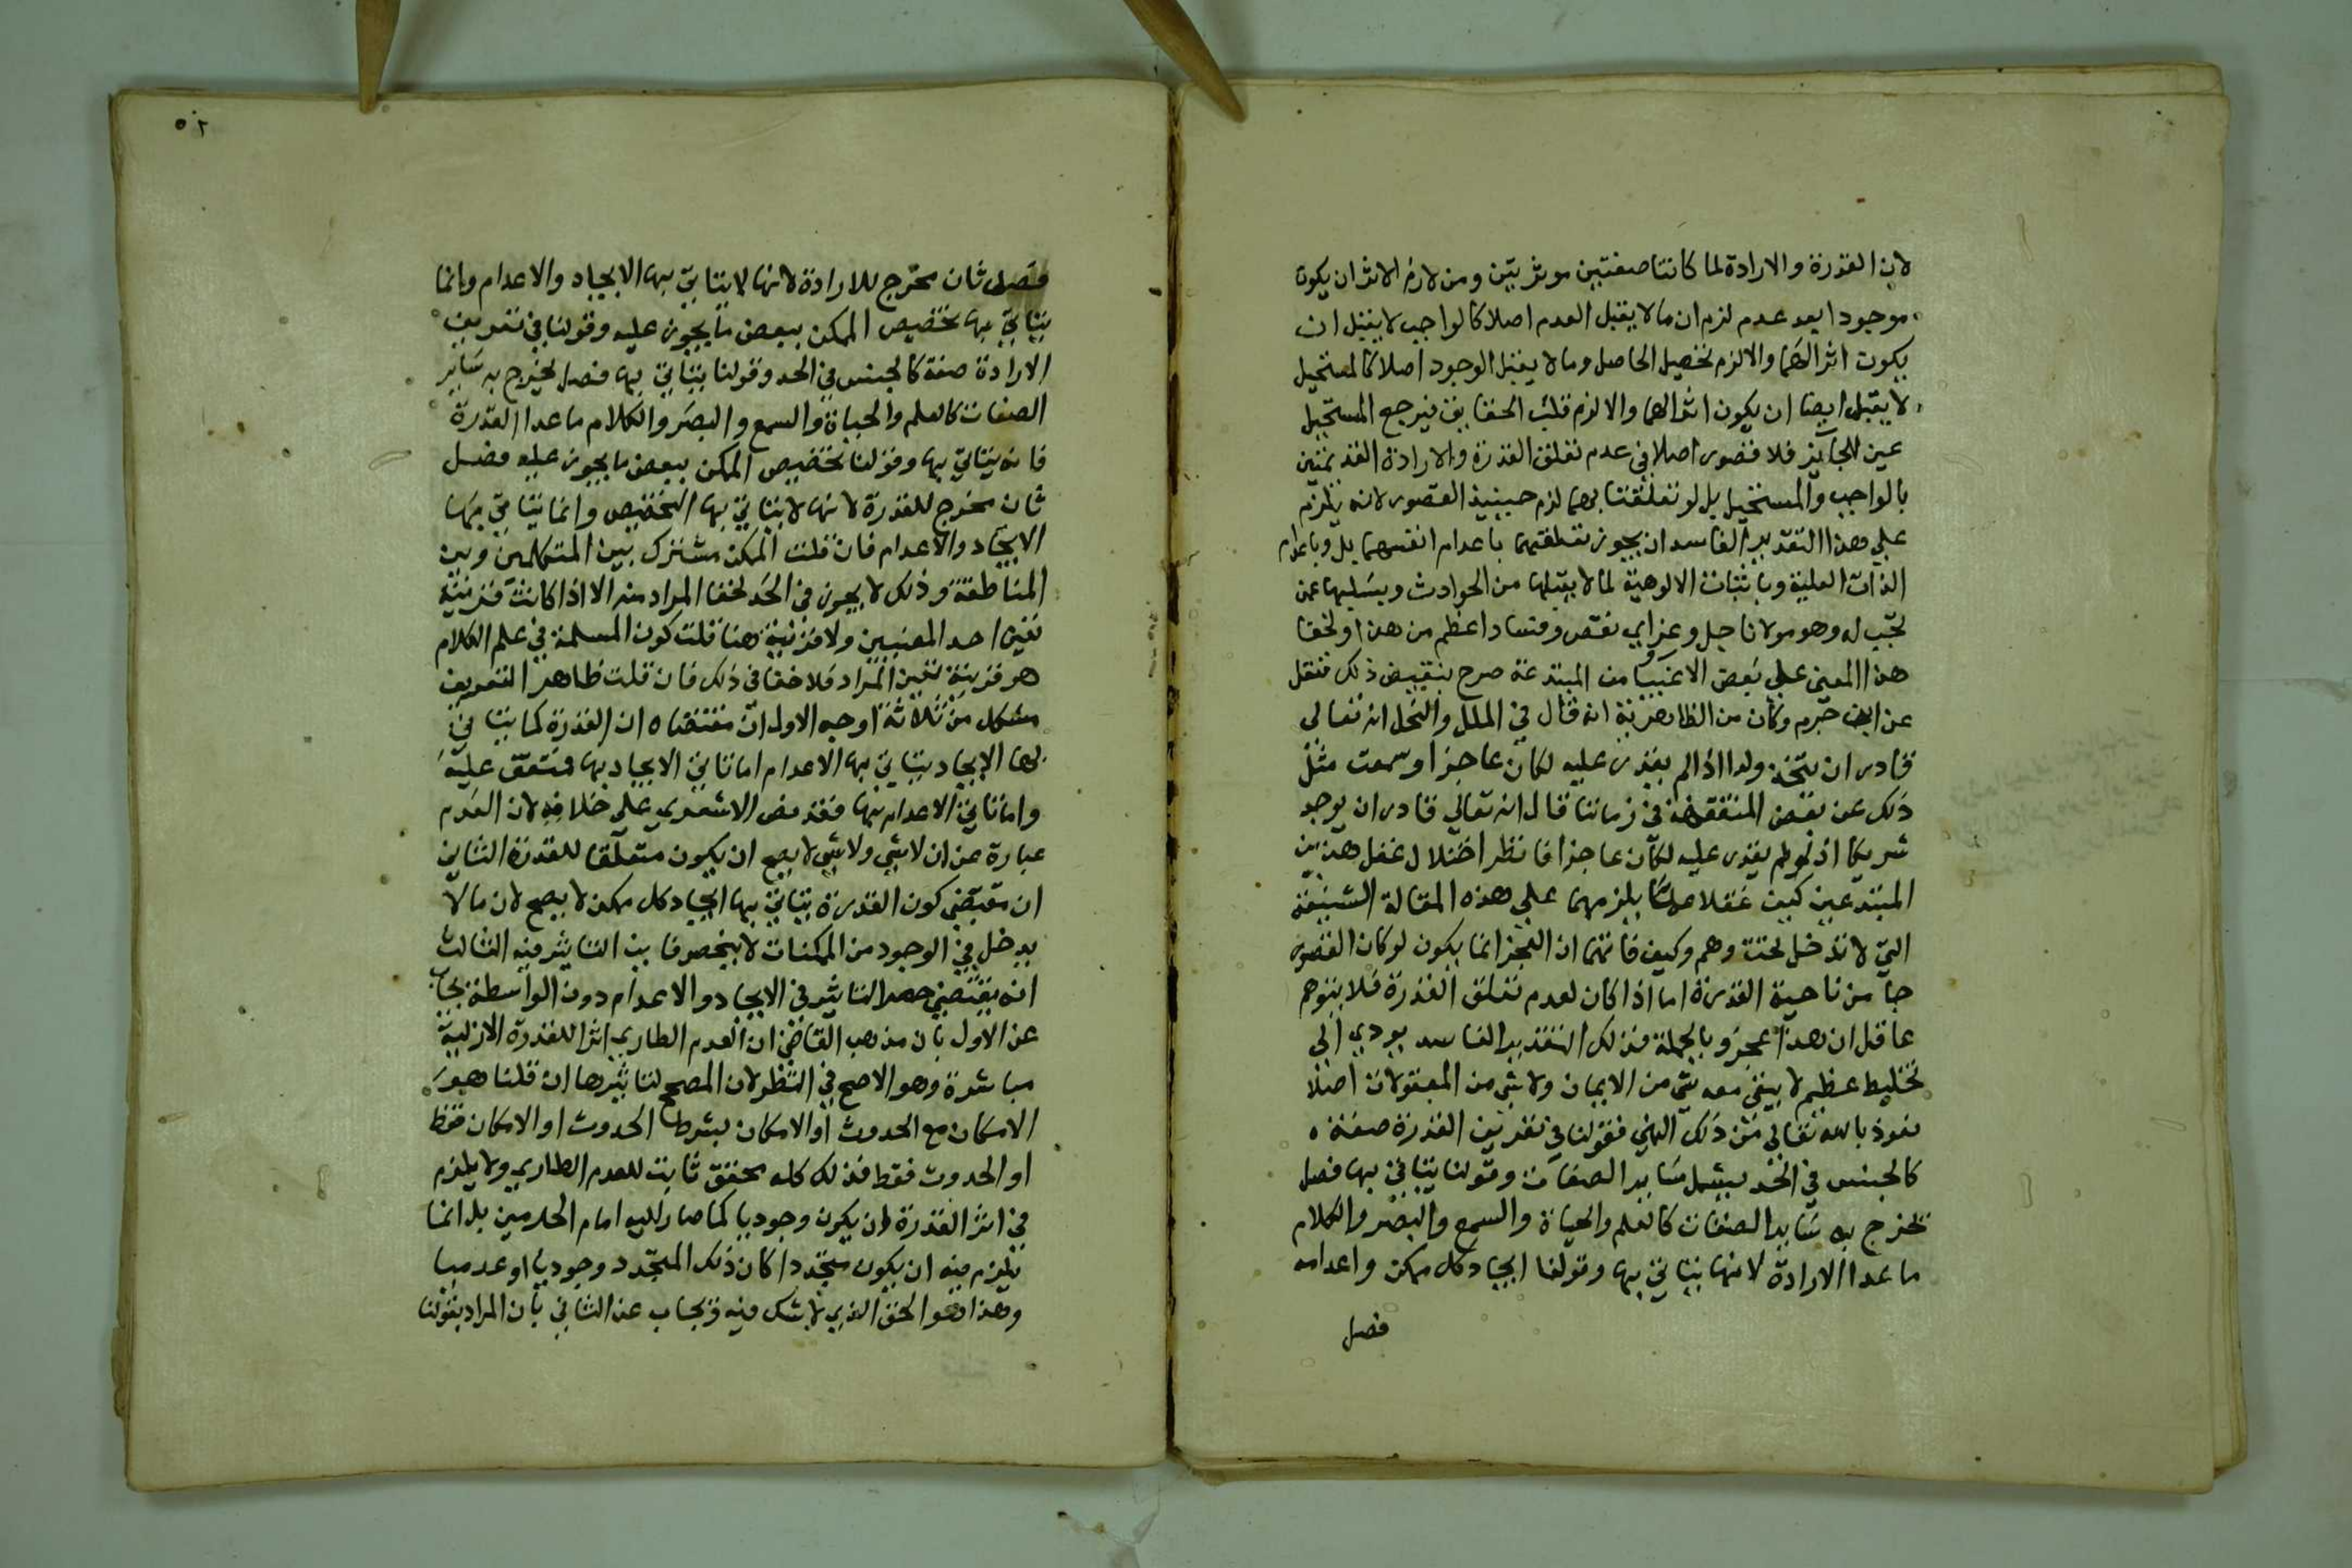 لان القدرة والارادة لما كانتا صفتين موثرتين ومن لازم الاثر ان يكون
موجودا بعد عدم لزم ان ما لا يقبل العدم اصلا كالواجب لا يقبل ان
يكون اثرا لهما والا لزم تحصيل الحاصل وما لا يقبل الوجود اصلا كالمستحيل
لا يقبل ايضا ان يكون اثرا لهما والا لزم قلب الحقايق فيرجع المستحيل
عين الجايز فلا قصور اصلا في عدم تعلق القدرة والارادة القديمتين
بالواجب والمستحيل بل لو تعلقتا بهما لزم حينيذ القصور لانه يلزم
علي هذا التقدير الفاسد ان يجوز تعلقهما باعدام انفسهما بل وباعدام
الذات العلية وباثبات الالوهية لما لا يقبلها من الحوادث وبسلبها عمن
تجب له وهو مولانا جل وعز اي نقص وفساد اعظم من هذا ولخفا
هذا المعني علي بعض الاغبيا من المبتدعة صرح بنقيض ذلك فنقل
عن ابن حزم وكان من الظاهرية انه قال في الملل والنحل انه تعالي
قادر ان يتخذ ولدا اذ لم يقدر عليه لكان عاجزا وسمعت مثل
ذلك عن بعض المتفقهة في زماننا قال انه تعالي قادر ان يوجد
شريكا اذ لو لم يقدر عليه لكان عاجزا فانظر اختلال عقل هذين
المبتدعين كيف غفلا عما يلزمهما علي هذه المقالة الشنيعة
التي لا تدخل تحت وهم وكيف فاتهما ان العجز انما يكون لو كان القصور
جا من ناحية القدرة اما اذا كان لعدم تعلق القدرة فلا يتوهم
عاقل ان هذا عجز وبالجملة فذلك التقدير الفاسد يودي الي
تخليط عظيم لا يبقي معه شي من الايمان ولا شي من المعقولات اصلا
نعوذ بالله تعالي من ذلك الهني فقولنا في تعريف القدرة صفة
كالجنس في الحد يشمل ساير الصفات وقولنا يتاتي بها فصل
تخرج به ساير الصفات كالعلم والحياة والسمع والبصر والكلام
ما عدا الارادة لانها يتاتي بها وقولنا ايجاد كل ممكن واعدامه
فصل
٥٢
فصل ثان مخرج للارادة لانها لا يتاتي بها الايجاد والاعدام وانما
يتاتي بها تخصيص الممكن ببعض ما يجوز عليه وقولنا في تعريف
الارادة صفة كالجنس في الحد وقولنا يتاتي بها فصل يخرج به ساير
الصفات كالعلم والحياة والسمع والبصر والكلام ما عدا القدرة
فانه يتاتي بها وقولنا تخصيص الممكن ببعض ما يجوز عليه فصل
ثان مخرج للقدرة لانها لا يتاتي بها التخصيص وانما يتاتي بها
الايجاد والاعدام فان قلت الممكن مشترك بين المتكلمين وبين
المناطقة وذلك لا يجوز في الحد لخفا المراد منه الا اذا كانت قرينة
تعين احد المعنيين ولا قرينة هنا قلت كون المسلمة في علم الكلام
هو قرينة تعين المراد فلا خفا في ذلك فان قلت ظاهر التعريف
مشكل من ثلاثة اوجه الاول ان مقتضاه ان القدرة كما يتاتي
بها الايجاد يتاتي بها الاعدام اما تاتي الايجاد بها فمتفق عليه
واما تاتي الاعدام بها فقد نص الاشعري علي خلافه لان العدم
عبارة عن ان لا شي ولا شي لا يصح ان يكون متعلقا للقدرة الثاني
ان مقتضي كون القدرة يتاتي بها ايجاد كل ممكن لا يصح لان ما لا
يدخل في الوجود من الممكنات لا ينحصر فاين التاثير فيه الثالث
انه يقتضي حصر التاثير في الايجاد والاعدام دون الواسطة يجاب
عن الاول بان مذهب القاضي ان العدم الطاري اثر للقدرة الازلية
مباشرة وهو الاصح في النظر لان المصحح لتاثيرها ان قلنا هو
الامكان مع الحدوث او الامكان بشرط الحدوث او الامكان فقط
او الحدوث فقط فذلك كله محقق ثابت للعدم الطاري ولا يلزم
في اثر القدرة ان يكون وجوديا كما صار اليه امام الحرمين بل انما
يلزم فيه ان يكون متجددا كان ذلك المتجدد وجوديا او عدميا
وهذا هو الحق الذي لا شك فيه ويجاب عن الثاني بان المراد بقولنا